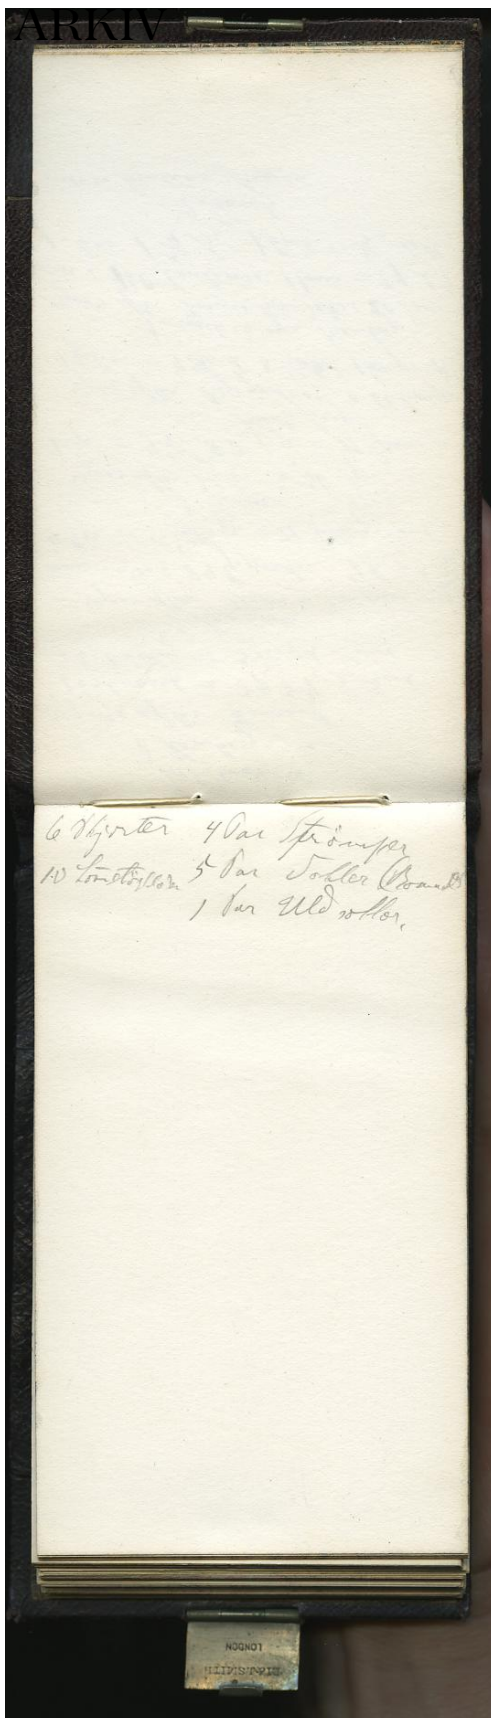 ARKIV
6 Skjorter 4 Par Strømper
10 5 Par Sokler (Bomuld)
1 Par Uld sokker.
LONDON